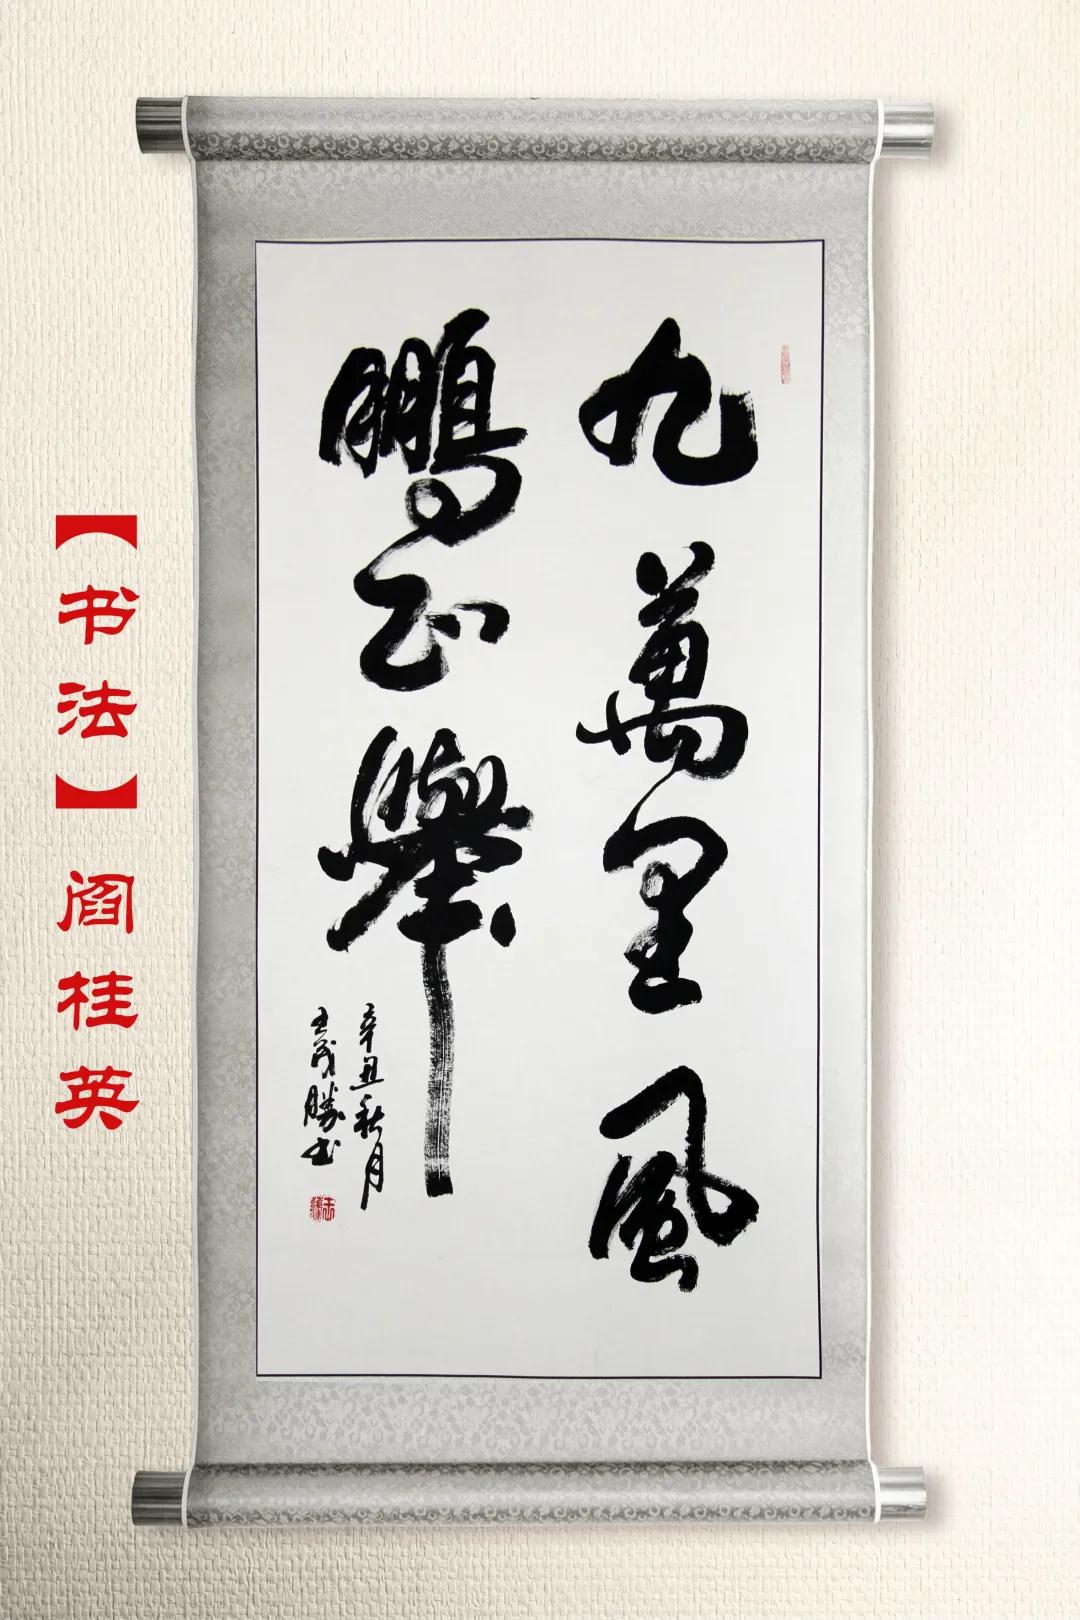 九萬里風
鵬正舉
辛丑秋月
王茂勝书
【书法】阎桂英